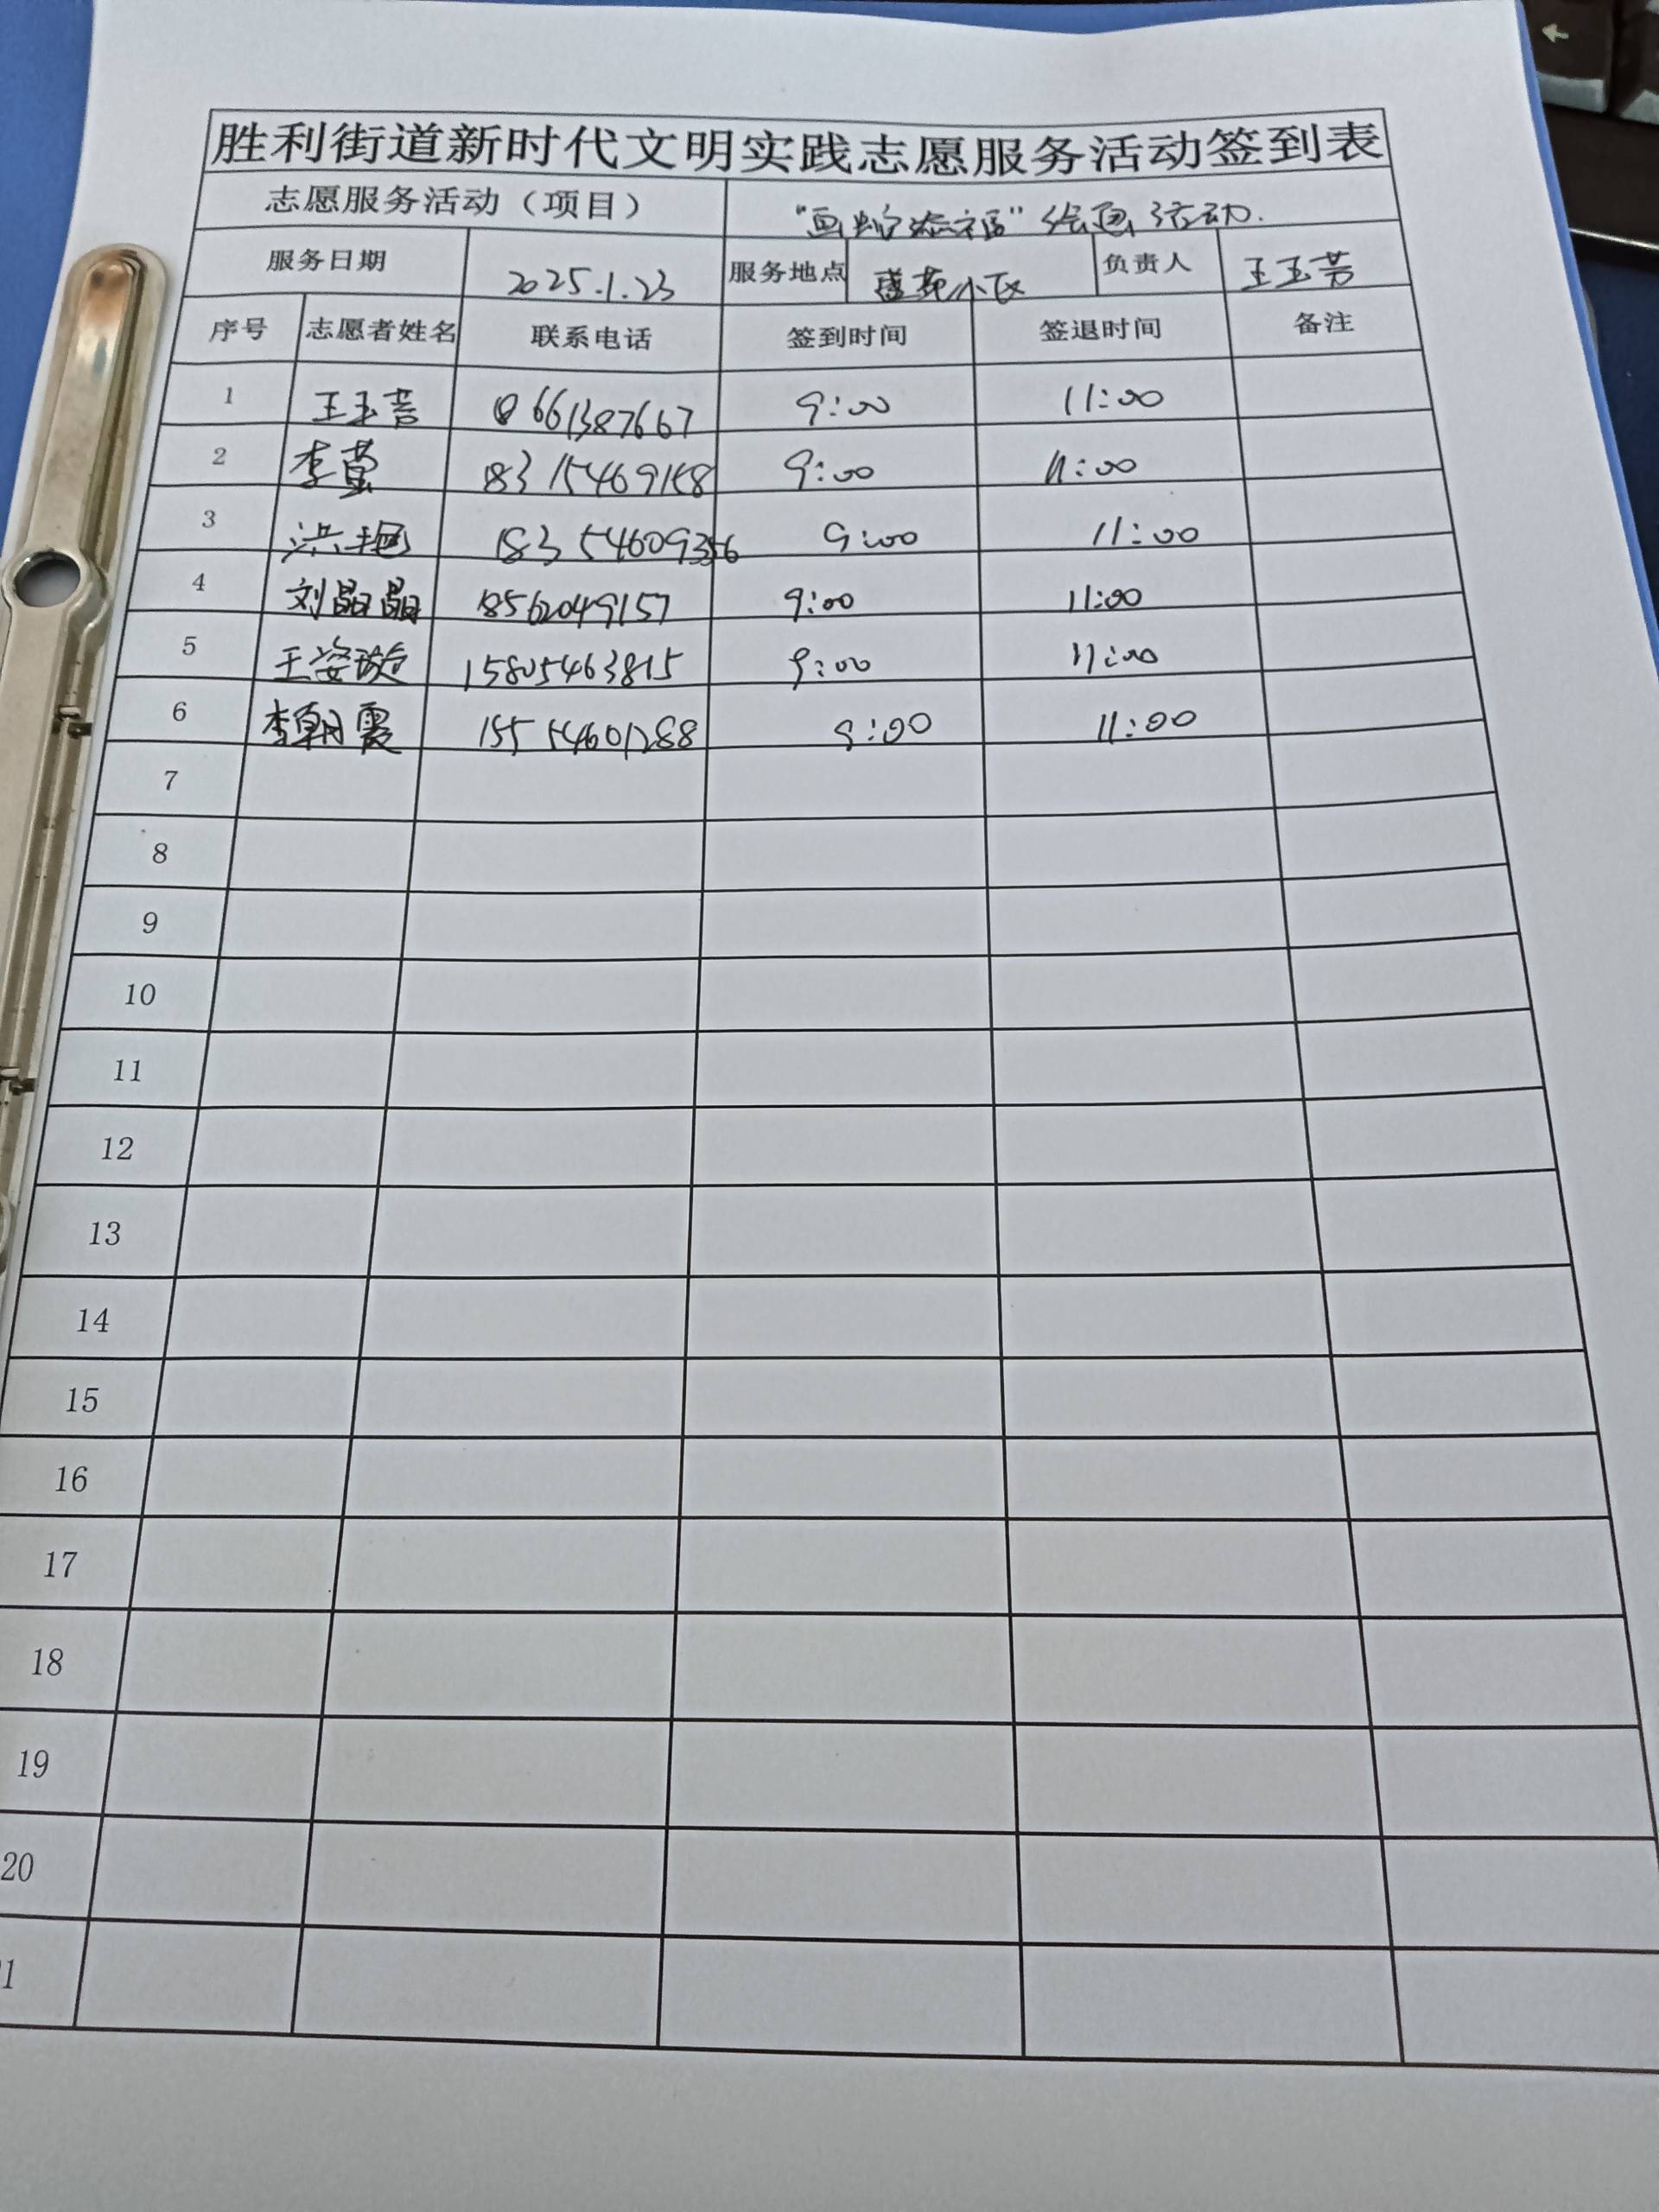 胜利街道新时代文明实践志愿服务活动签到表
志愿服务活动（项目） “画蛇添福”绘画活动.
服务日期 2025.1.23 服务地点 小区 负责人 王玉芳
序号 志愿者姓名 联系电话 签到时间 签退时间 备注
1 王玉芳 9:00 11:00
2 李萤 9:00 11:00
3 洪艳 18354609356 9:00 11:00
4 刘晶晶 18562049157 9:00 11:00
5 王姿璇 15805463815 9:00 11:00
6 李朝霞 15554601288 9:00 11:00
7
8
9
10
11
12
13
14
15
16
17
18
19
20
1